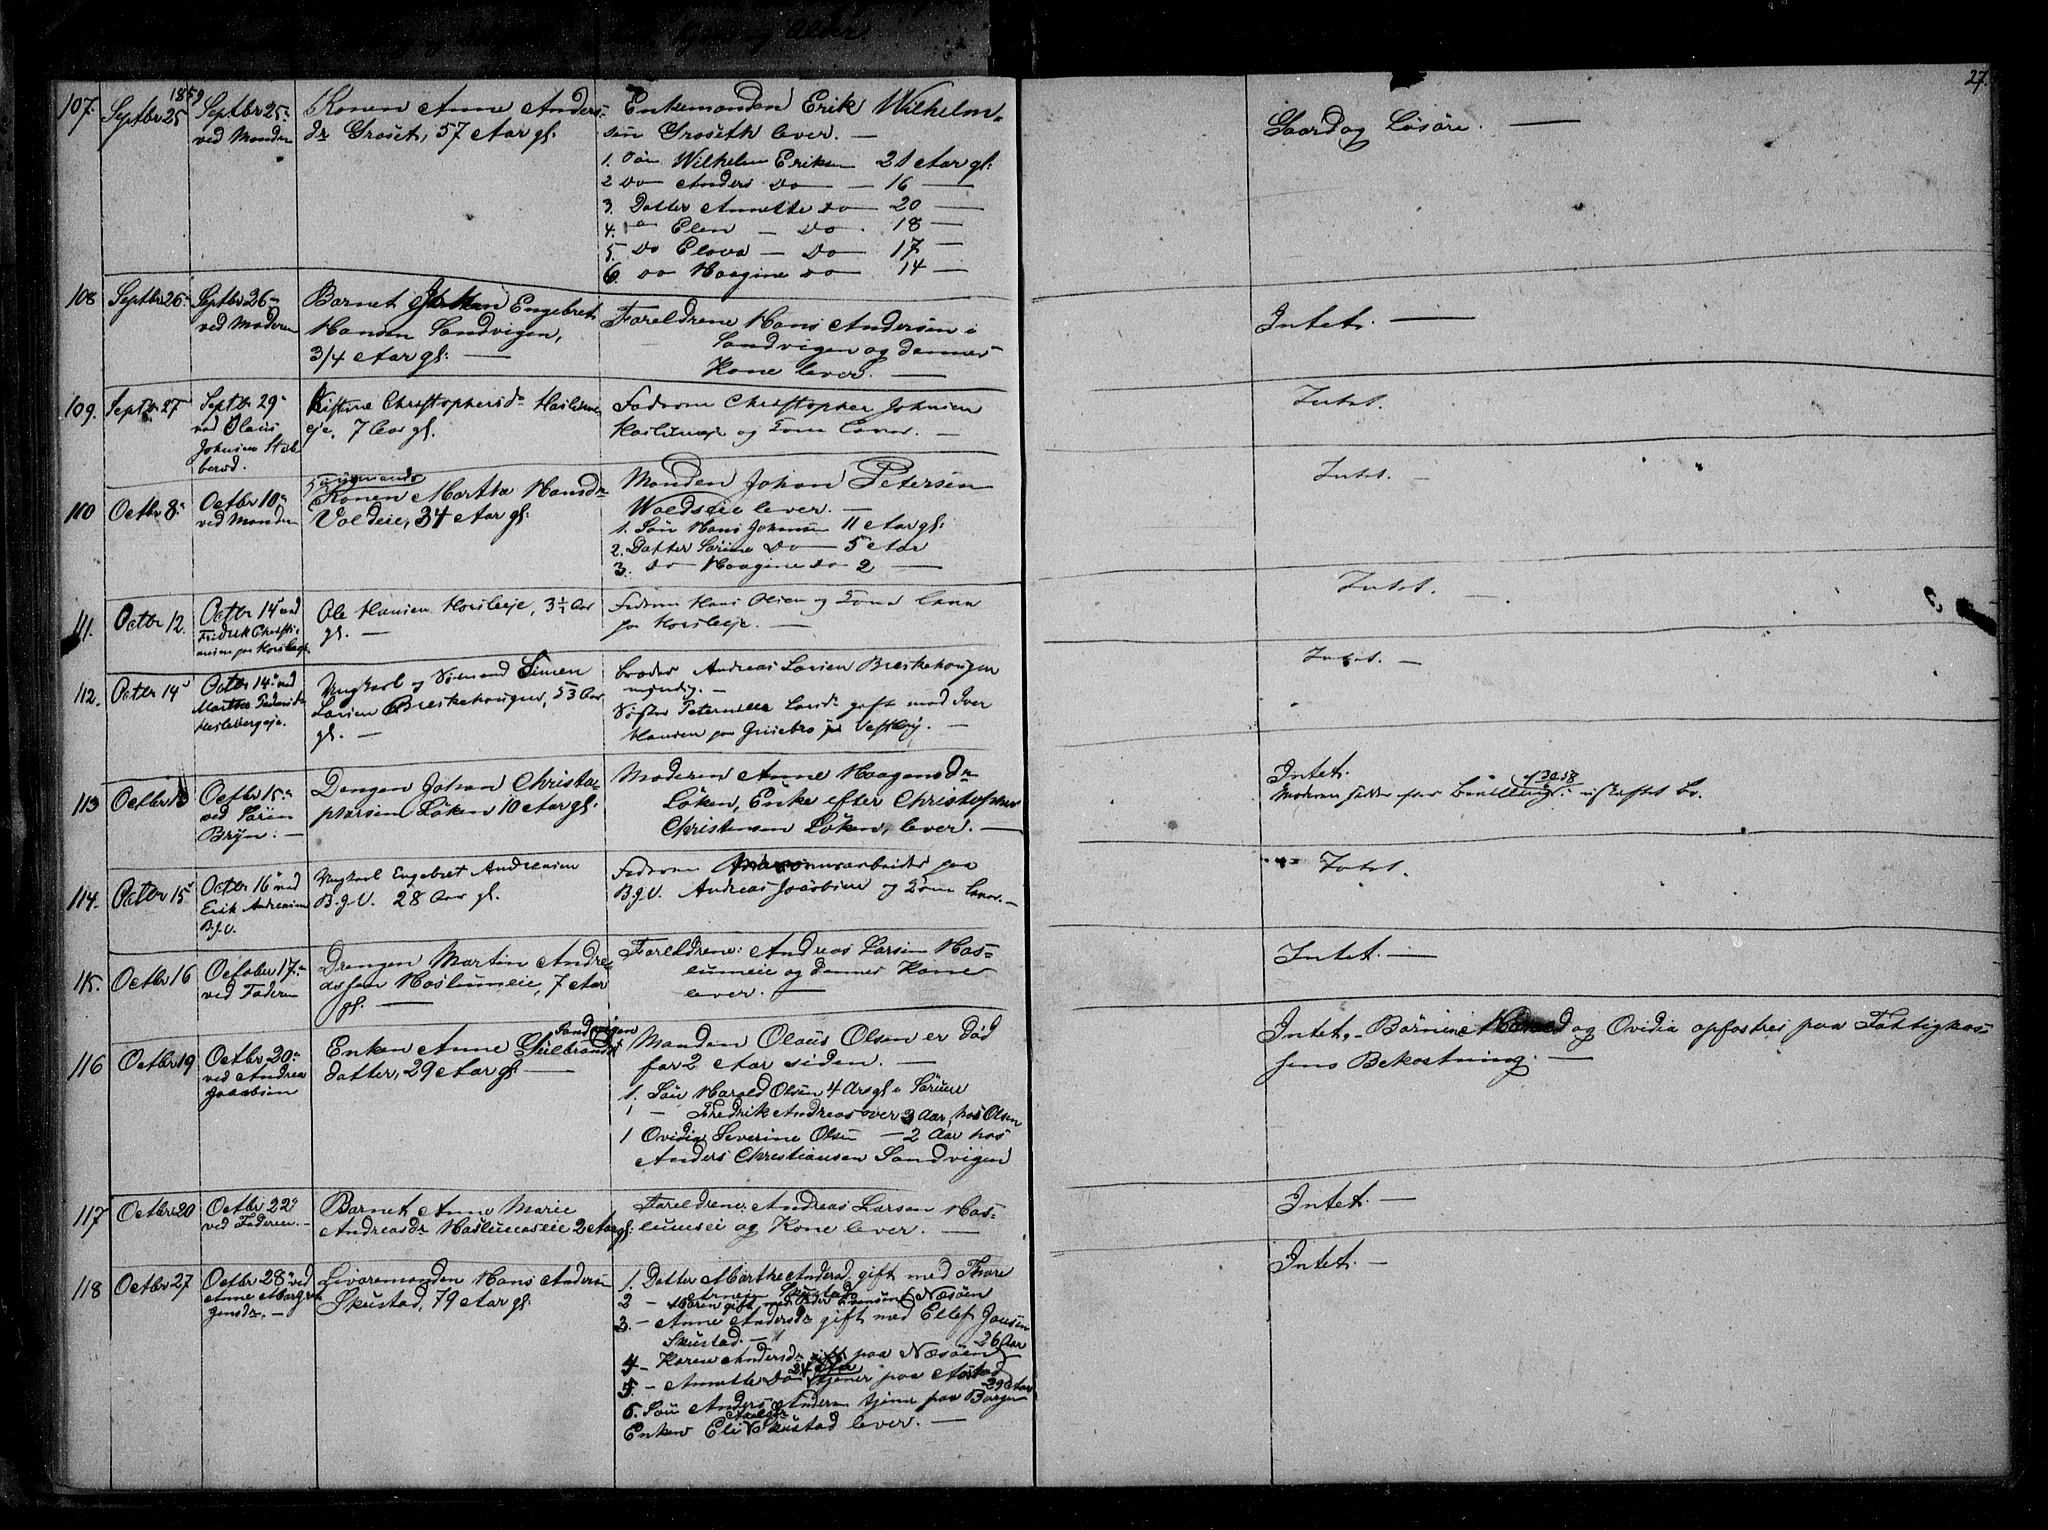 og Alder
27.
1859
107. Septbr 25 Septbr 25 ved Manden
Konen Anne Anders-
dr Groset, 57 Aar gl.
Enkemanden Erik Wilhelm-
sen Groseth lever. —
1. Søn Wilhelm Eriksen 21 Aar gl:
2 Do Anders Do — 16 —
3. Datter Annette Do 20 —
4. Do Elen — Do . 18 —
5. Do Elova — Do 17 —
6. Do Haagine Do 14 —
Gaard og Løsöre. —
108 Septbr 26 Septbr 26 ved Moderen
Barnet Engebret
Hansen Sandvigen,
3/4 Aar gl: —
Foreldrene Hans Andersen i
Sandvigen og dennes
Kone lever. —
Intet. —
109. Septbr 27 Septbr 29 ved Olaus
Johnsen Stab-
berud.
Kistine Christophersdr Haslum-
eje, 7 Aar gl.
Faderen Christopher Johnsen
Haslumeje og Kone lever. —
Intet.
110 Octbr 8 Octbr 10 ved Manden
Konen Marthe Hansdr
Voldeie, 34 Aar gl:
Manden Johan Petersen
Woldseie lever. —
1. Søn Hans Johansen 11 Aar gl:
2. Datter Sörine Do — 5 Aar
3. Do Haagine Do 2 —
Intet. —
111. Octbr 12. Octbr 14 ved
Fredrik Christi-
ansen paa Horsleeje
Ole Hansen Horsleeje, 3½ Aar
gl. —
Faderen Hans Olsen og Kone lever
paa Horsleeje. —
Intet. —
112. Octbr 14 Octbr 14 ved
Marthe Pedersdr
Haslebergeje.
Ungkarl og Sømand Simen
Larsen Breskehougen, 53 Aar
gl. —
Broder Andreas Larsen Breskehougen
myndig. —
Søster Peternille Larsdr gift med Iver
Hansen paa Vestby. —
Intet. —
113 Octbr Octbr 15
ved Sören
Bryn. —
Drengen Johan Christo-
phersen Löken 10 Aar gl:
Moderen Anne Haagensdr
Löken, Enke efter Christopher
Christensen Löken, lever. —
Intet.
Moderen sidder efter Bevilling af 30 58 i uskiftet Bo.
114. Octbr 15 Octbr 16 ved
Erik Andreasen
B.g.V.
Ungkarl Engebret Andreasen
B.g.V. 28 Aar gl.
Faderen paa
B.g.V. Andreas Jacobsen og Kone lever. —
Intet.
115. Octbr 16 October 17
ved Faderen
Drengen Martin Andre-
assen Haslumeie, 7 Aar
gl. —
Foreldrene: Andreas Larsen Has-
lumeie og dennes Kone
lever. —
Intet. —
116 Octbr 19 Octbr 20
ved Andreas
Jacobsen
Sandvigen
Enken Anne Gulbrands-
datter, 29 Aar gl —
Manden Olaus Olsen er död
for 2 Aar siden. —
1. Søn Harald Olsen 4 Ars gl i
1 — Fredrik Andreas over 3 Aar, hos Olsen
1 Ovidia Severine Olsen — 2 Aar hos
Anders Christiansen Sandvigen
Intet. — Börnene Harald og Ovidia opfostres paa Fattigkas-
sens Bekostning. —
117 Octbr 20 Octbr 22
ved Faderen. —
Barnet Anne Marie
Andreasdr Haslumseie 2 Aar gl:
Foreldrene Andreas Larsen Has-
lumsei og Kone lever. —
Intet. —
118 Octbr 27 Octbr 28 ved
Anne
Jensdr. —
Hans Andersen
Skustad, 79 Aar gl:
1. Datter Marthe Andersd. gift med Thore
Skustad
2 — Maren gift med Peder Næsöen
3. — Anne Andersdr gift med Ellef Jansen
Skustad. —
4 — Karen Andersdr 26 Aar gift paa Næsöen
5. — Annette Do 24 Aar tjener paa
6. Søn Anders Andersen tjener paa Borgen 29 Aar
Enken Eli Skustad lever. —
Intet. —